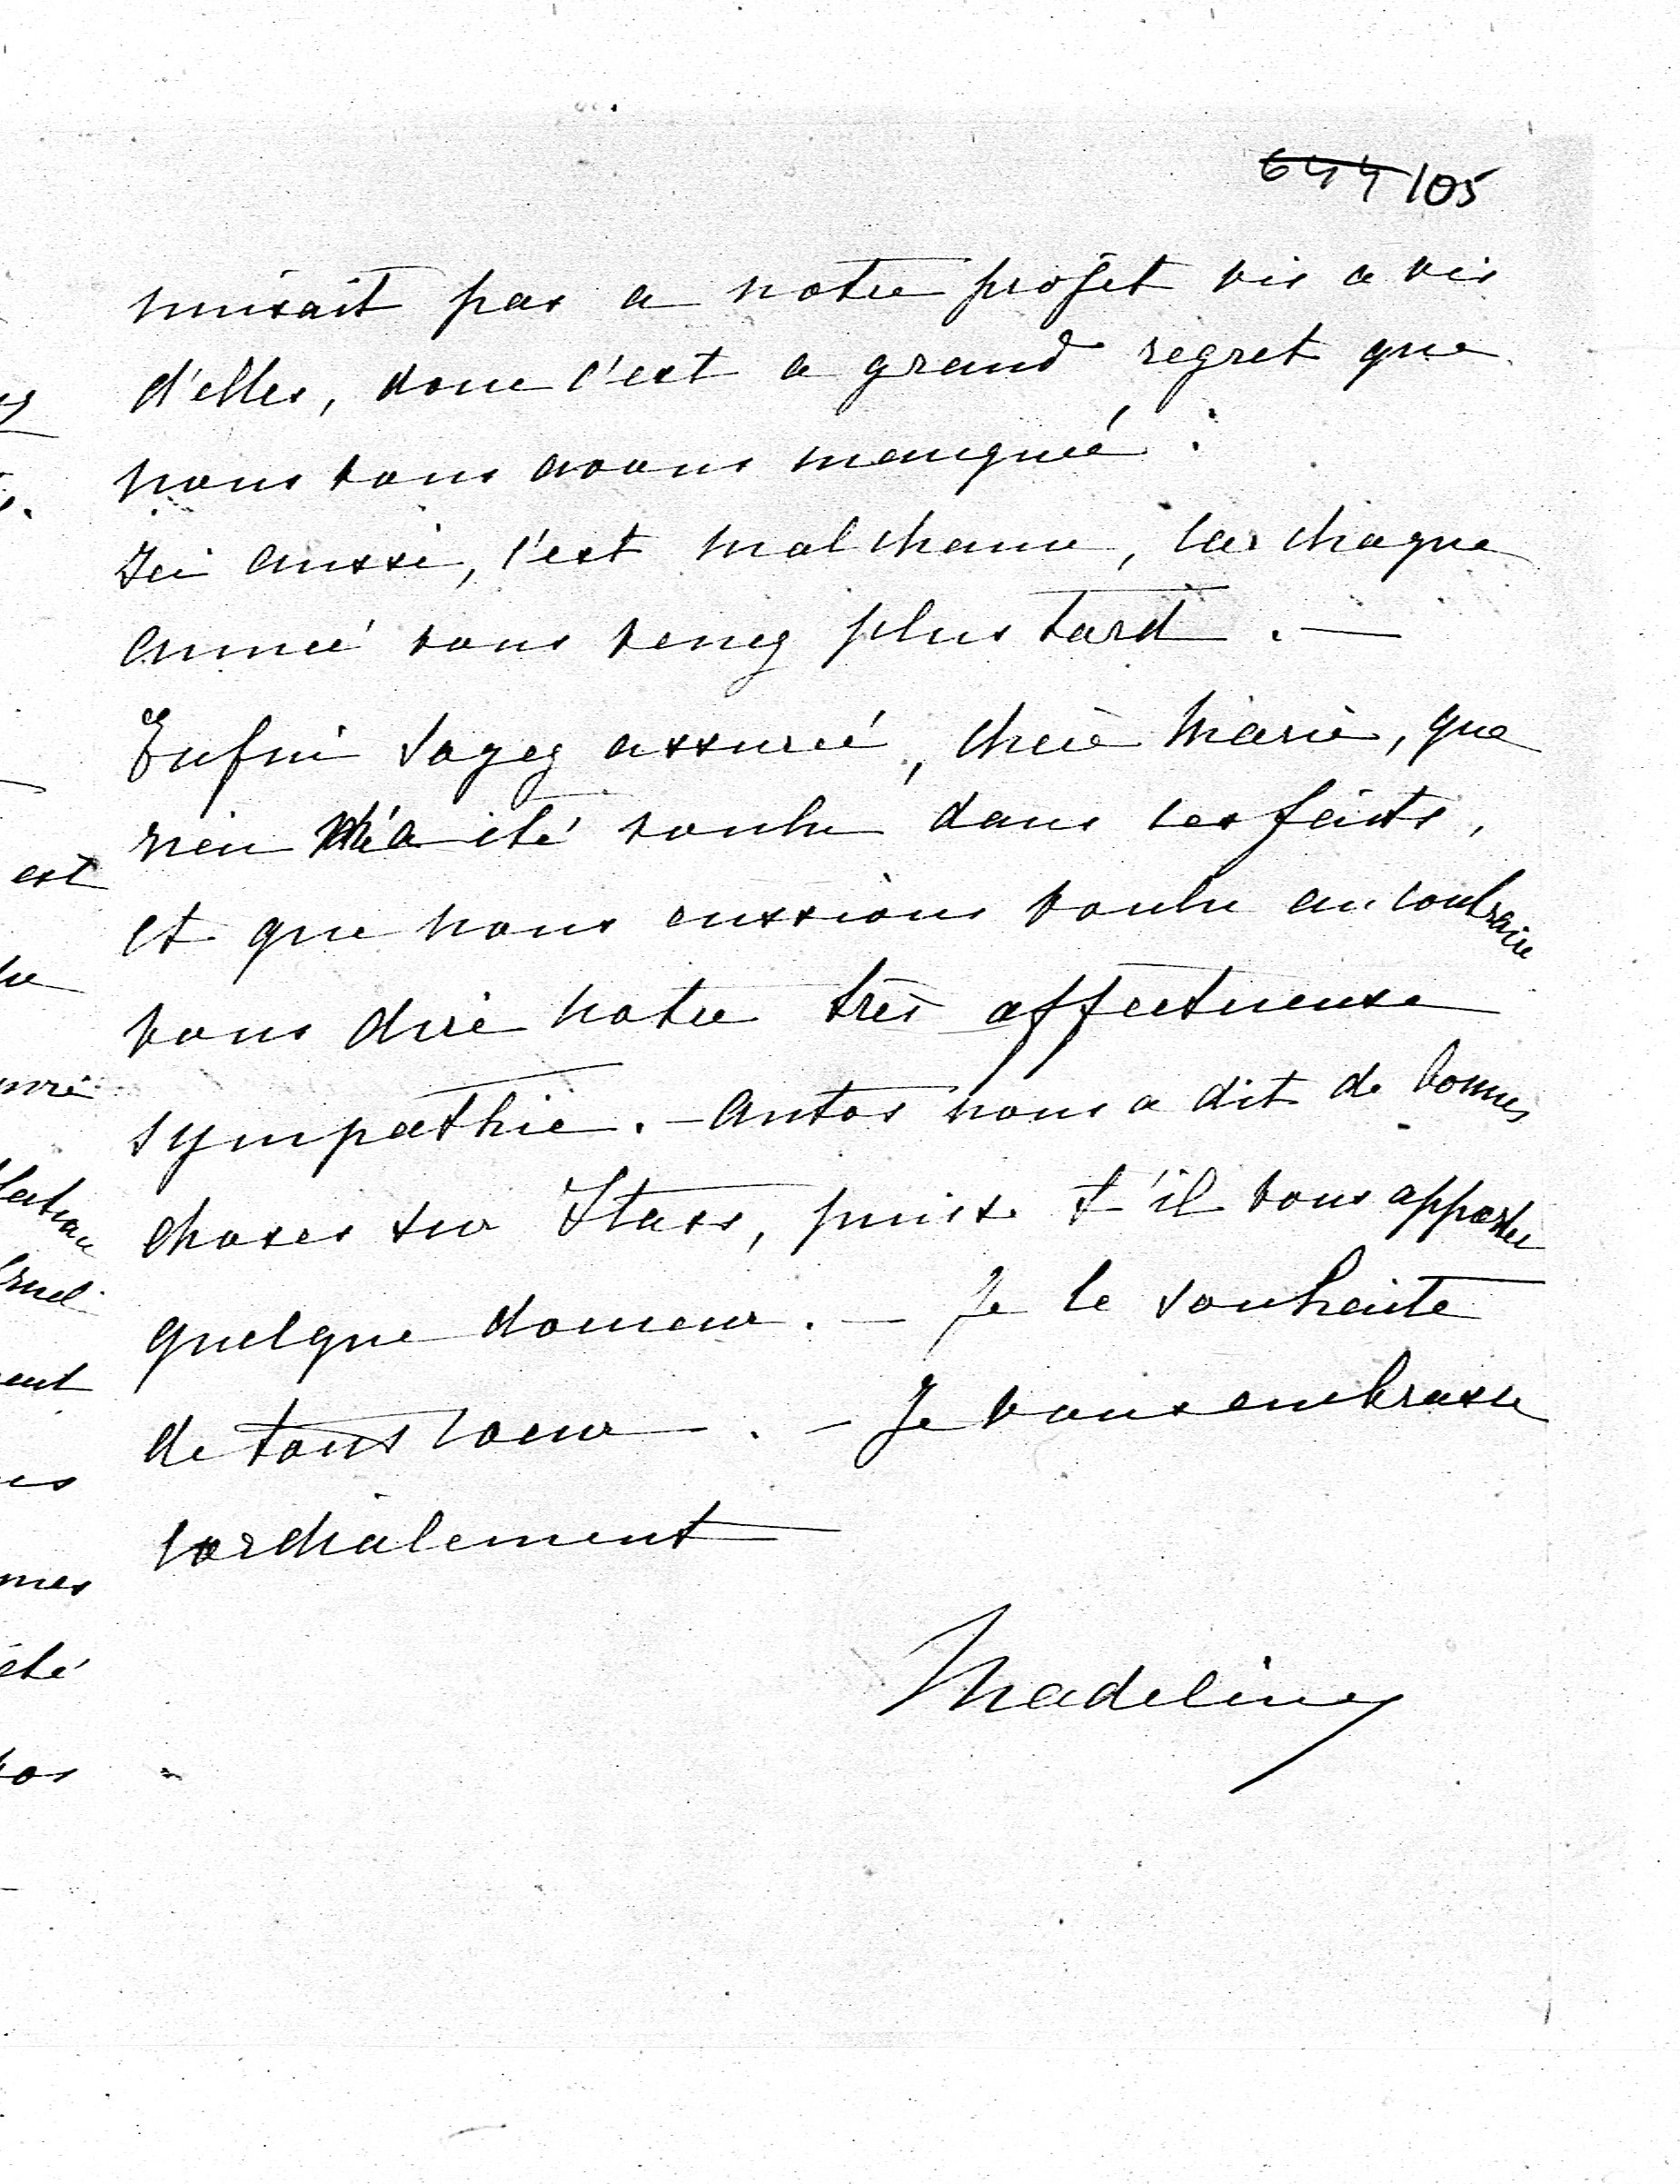 644 105
nuisait pas a notre projet vis a vis
d'elles, donc c'est a grand regret que
nous vous avons manqué.
Ici aussi, c'est malchance, car chaque
année vous venez plus tard. —
Enfin soyez assurée, chère Marie, que
rien n'a été voulu dans ces faits,
et que nous eussions voulu au contraire
vous dire notre très affectueuse
sympathie. — Antos nous a dit de bonnes
choses sur Stass, puisse t'il vous apporter
quelque douceur. — Je le souhaite
de tout coeur. — Je vous embrasse
cordialement
Madeline
est
ent
es
mes
été
vos